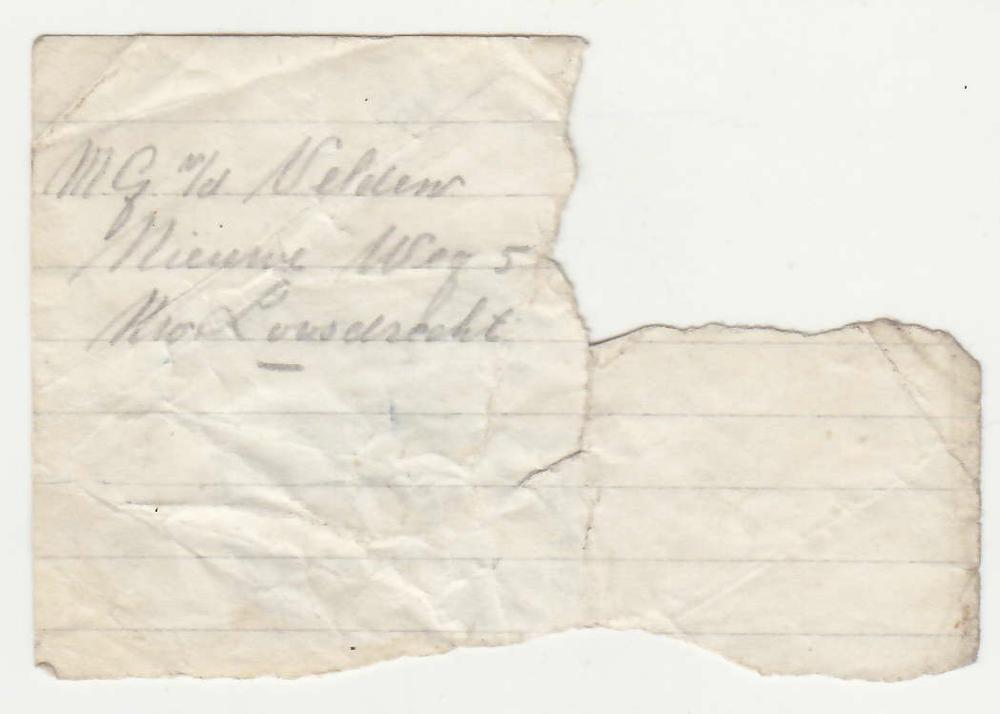 M G. v/d Velden
Nieuwe Weg 5
Nw. Loosdrecht